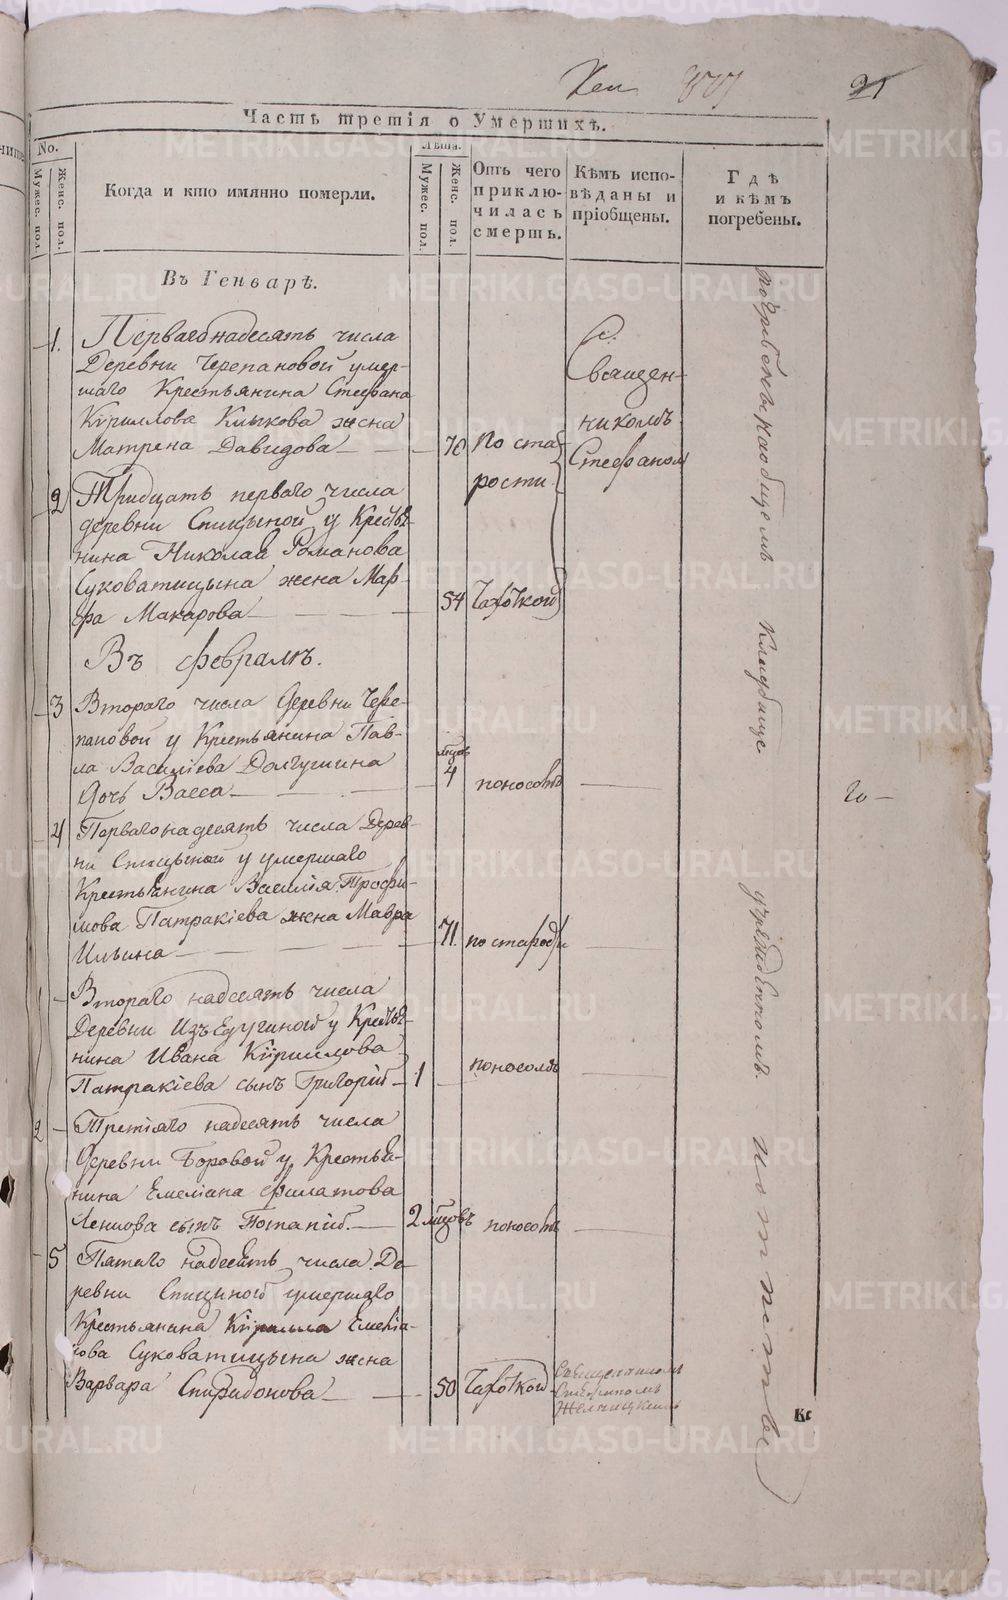 21
Часть третія о Умершихъ.
No.
Мужес. пол.
Женс. пол.
Когда и кто имянно померли.
Лѣта.
Мужес. пол.
Женс. пол.
Отъ чего
приклю-
чилась
смерть.
Кѣмъ испо-
вѣданы и
пріобщены.
Гдѣ
и кѣмъ
погребены.
Въ Генварѣ.
1. Перваго надесять числа
Деревни Черепановой умер-
шаго Крестьянина Стефана
Кириллова Клыкова жена
Матрена Давидова 70 По ста-
рости
С.
Священ-
никомъ
Стефаном
2 Тридцать перваго числа
деревни Спицыной у Крестья-
нина Николая Романова
Суковатицына жена Мар-
фа Макарова 54 Чахоткой
Въ февралѣ.
3 Втораго числа Деревни Чере-
пановой у Крестьянина Пав-
ла Василіева Долгушина
Дочь Васса мцов 4 поносомъ
4 Перваго надесять числа Дерев-
ни Спицыной у умершаго
Крестьянина Василія Трофи-
мова Патракіева жена Мавра
Ильина 71. по старости
1 Втораго надесять числа
Деревни Изъедугиной у Крестья-
нина Ивана Кириллова
Патракіева сынъ Григорій 1 поносомъ
2 Третіяго надесять числа
Деревни Боровой у Крестья-
нина Емеліана Филатова
сынъ Потапій. 2 мцовъ поносомъ
5 Пятаго надесять числа Де-
ревни Спициной умершаго
Крестьянина Кирилла Емеліа-
нова Суковатицына жена
Варвара Спиридонова 50 Чахоткой
Священникомъ
погребены на общемъ кладбище учрежденномъ
20
Кс
METRIKI.GASO-URAL.RU